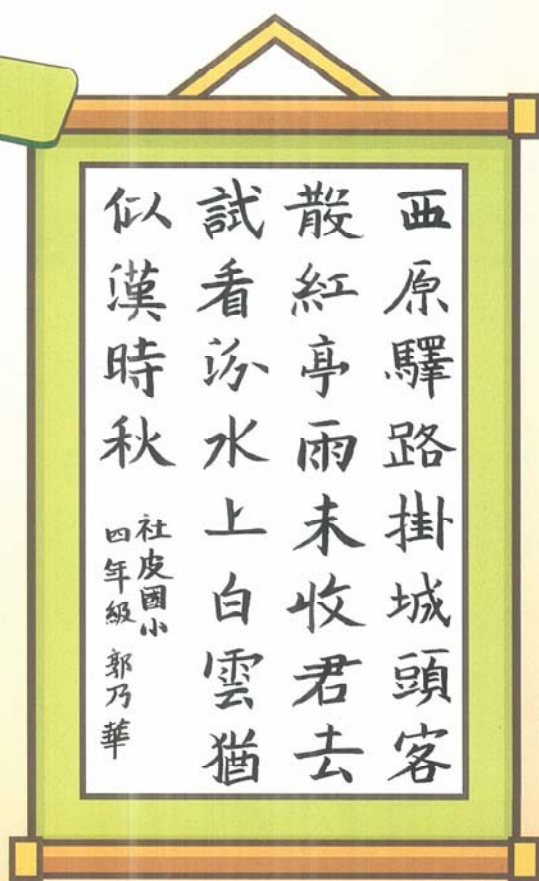 西原驛路掛城頭客
散紅亭雨未收君去
試看汾水上白雲猶
似漢時秋
社皮國小
四年級 郭乃華